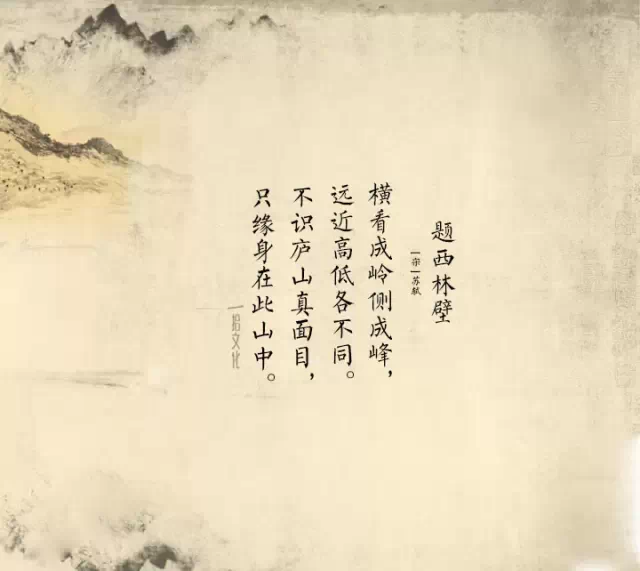 题西林壁
[宋]苏轼
横看成岭侧成峰，
远近高低各不同。
不识庐山真面目，
只缘身在此山中。
一拾文化